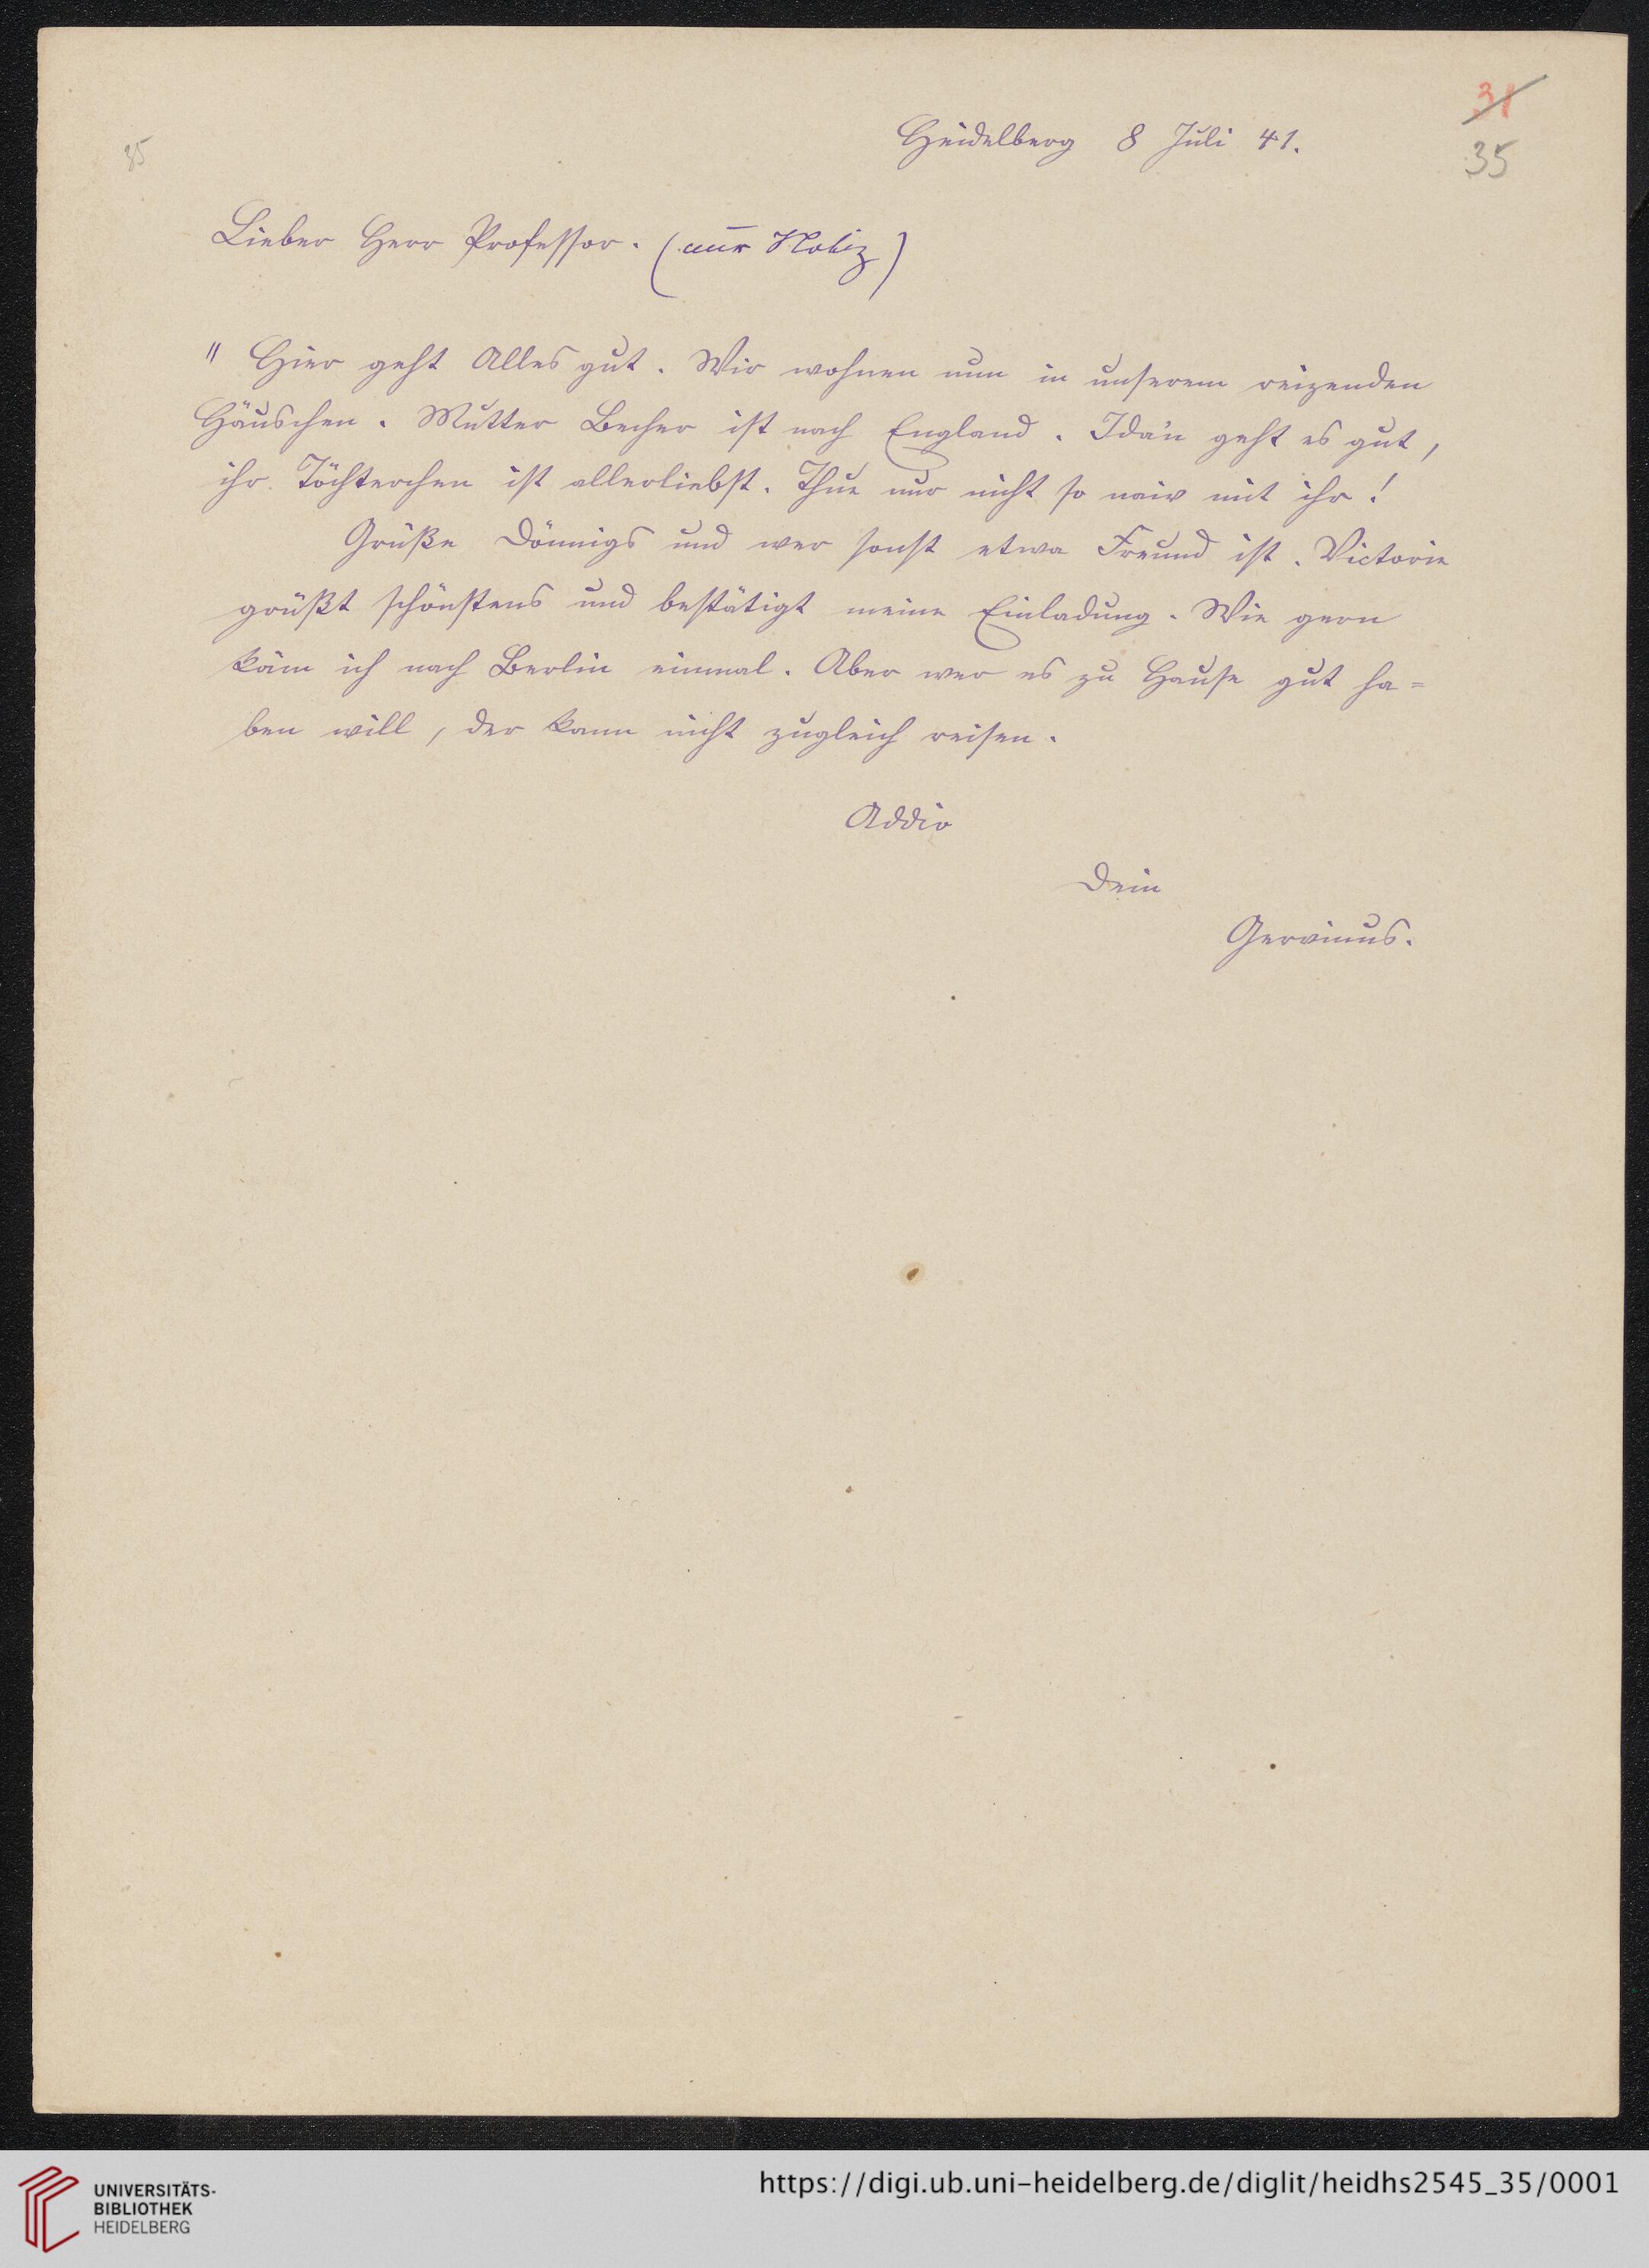 31
Heidelberg 8 Juli 41.
35
35
Lieber Herr Professor. (nur Notiz)
" Hier geht Alles gut. Wir wohnen nun in unserem reizenden
Häuschen. Mutter Becher ist nach England. Ida'n geht es gut,
ihr Töchterchen ist allerliebst. Thue nur nicht so naiv mit ihr!
Grüße Dönnigs und wer sonst etwa Freund ist. Victorie
grüßt schönstens und bestätigt meine Einladung. Wie gern
käm ich nach Berlin einmal. Aber wer es zu Hause gut ha=
ben will, der kann nicht zugleich reisen.
Addio
Dein
Gervinus.
UNIVERSITÄTS-
BIBLIOTHEK
HEIDELBERG
https://digi.ub.uni-heidelberg.de/diglit/heidhs2545_35/0001